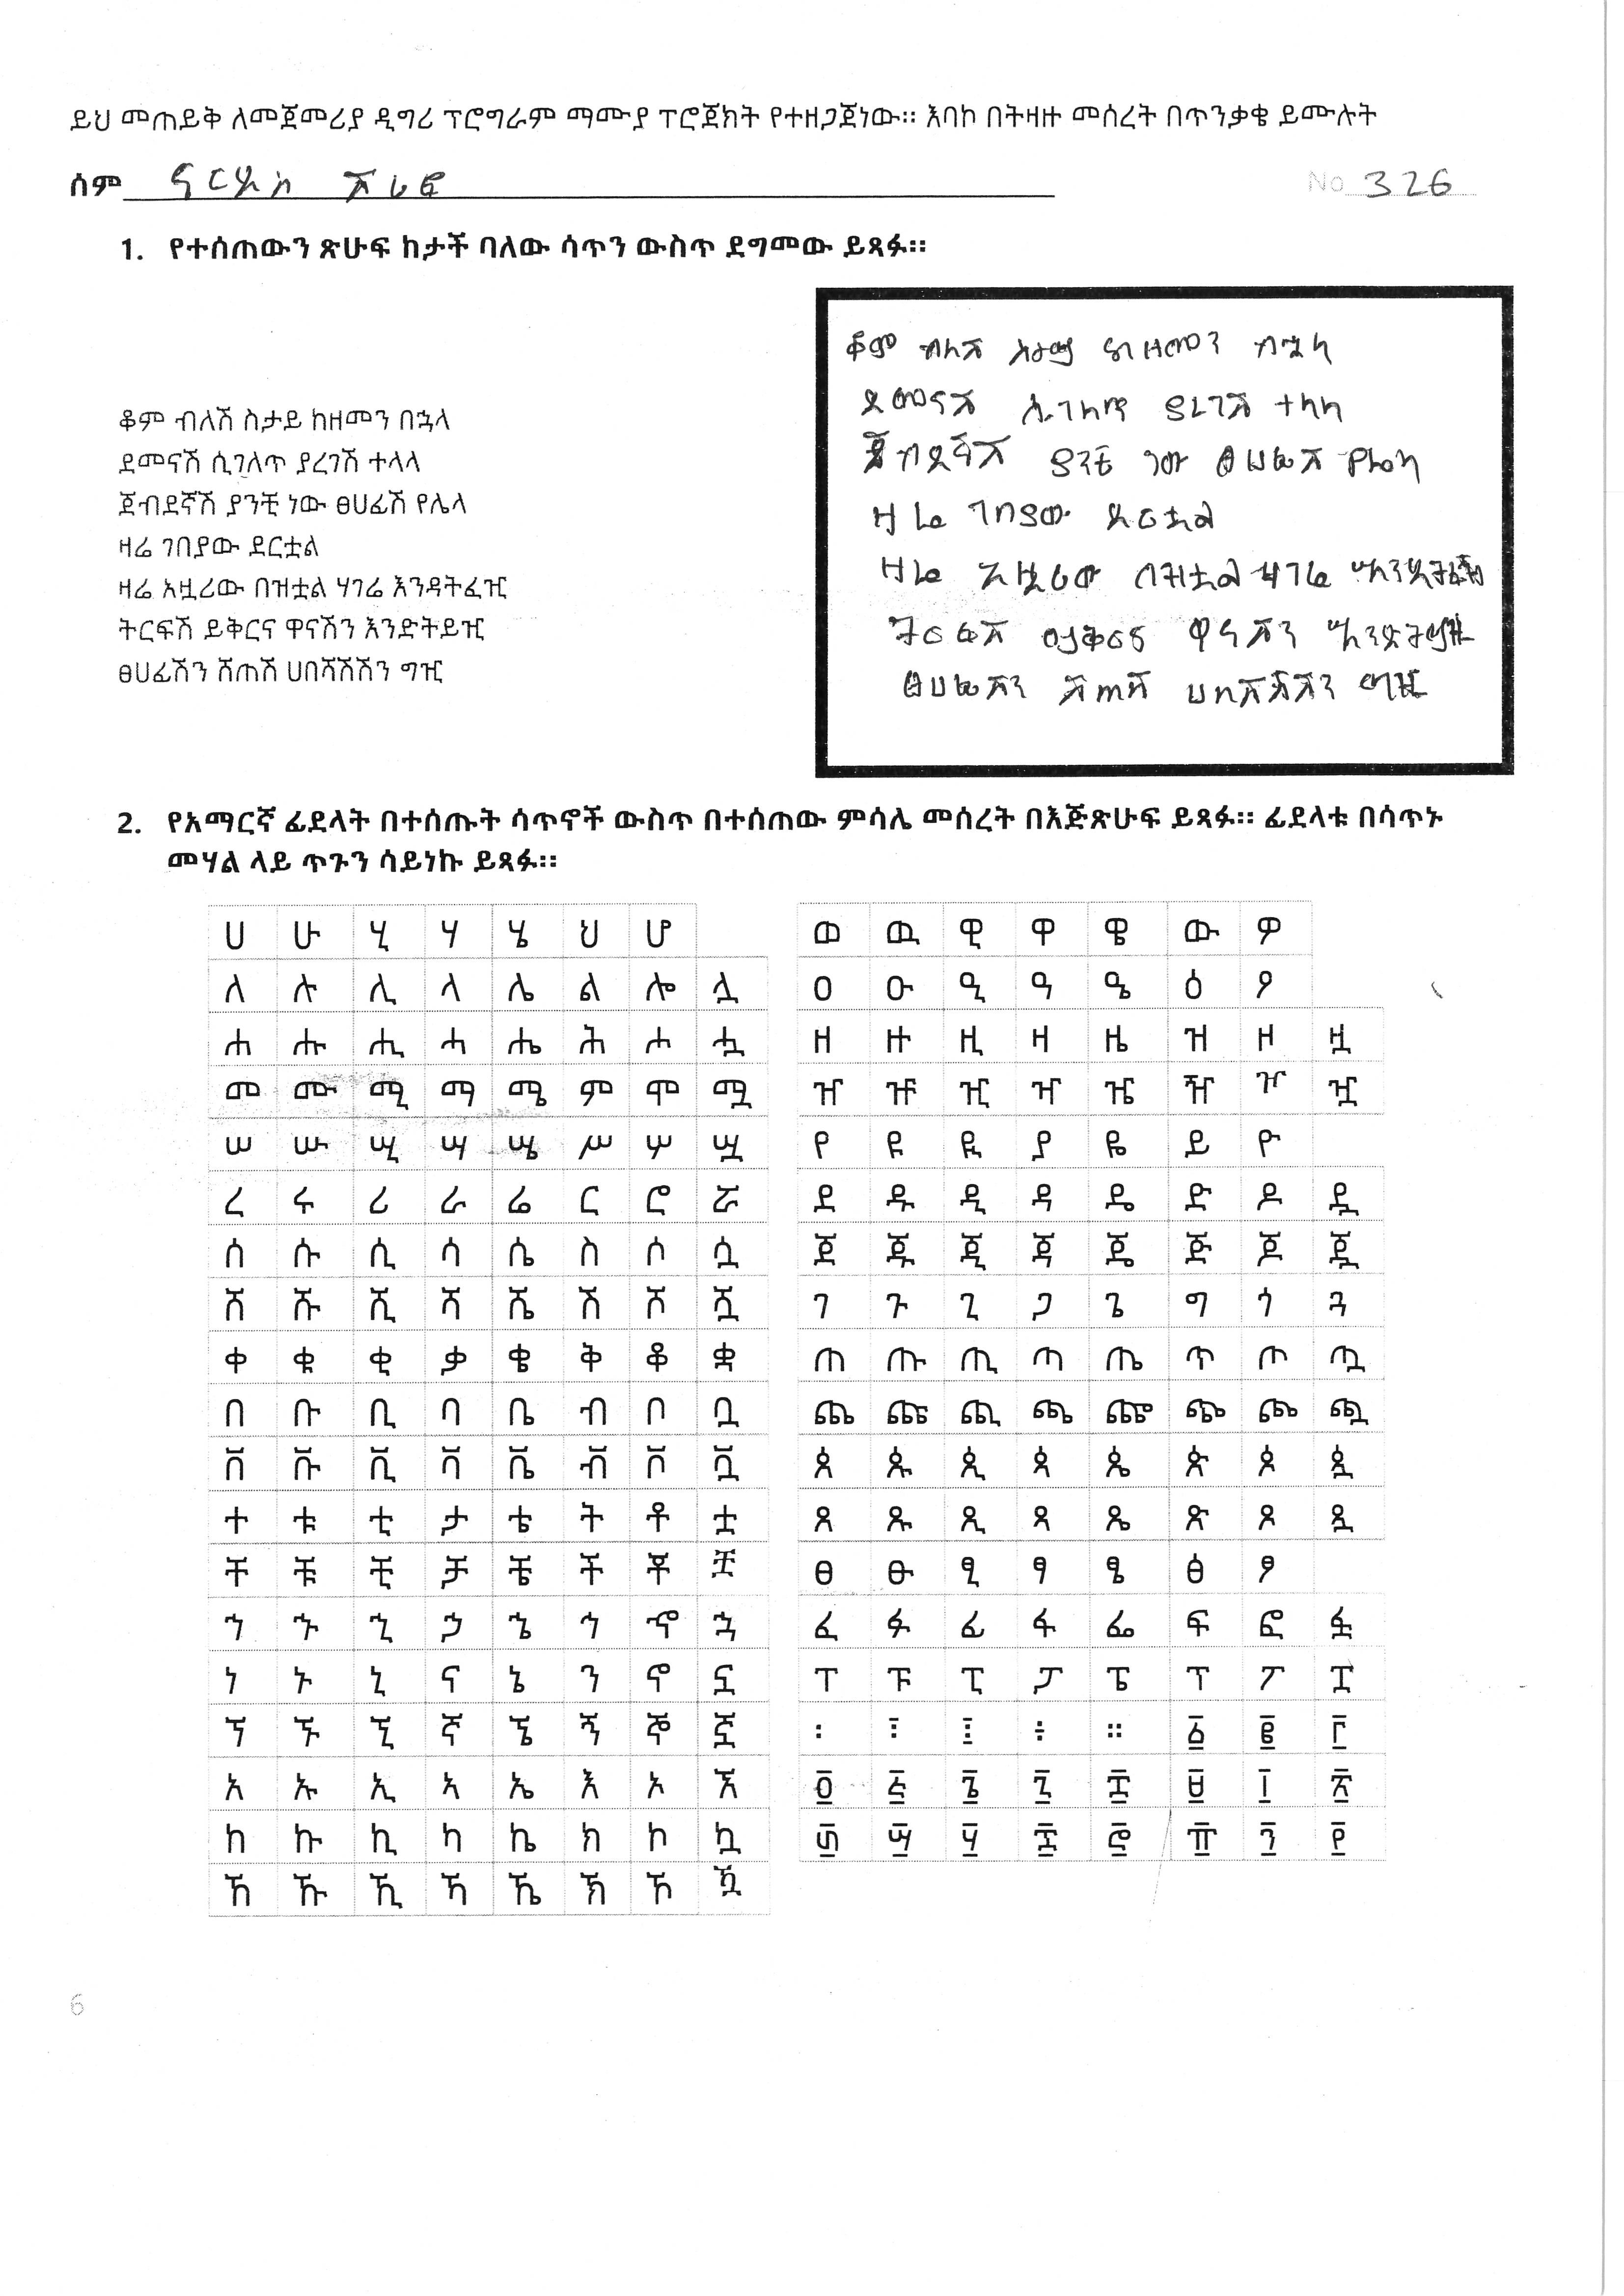 ይህ መጠይቅ ለመጀመሪያ ዲግሪ ፕሮግራም ማሙያ ፕሮጀክት የተዘጋጀነው። እባኮ በትዛዙ መሰረት በጥንቃቄ ይሙሉት
ስም
No 326
1. የተሰጠውን ጽሁፍ ከታች ባለው ሳጥን ውስጥ ደግመው ይጻፉ።
ቆም ብለሽ ስታይ ከዘመን በኋላ
ደመናሽ ሲገለጥ ያረገሽ ተላላ
ጀብደኛሽ ያንቺ ነው ፀሀፊሽ የሌላ
ዛሬ ገበያው ደርቷል
ዛሬ አዟሪው በዝቷል ሃገሬ እንዳትፈዢ
ትርፍሽ ይቅርና ዋናሽን እንድትይዢ
ፀሀፊሽን ሸጠሽ ሀበሻሽሽን ግዢ
ቆም ብለሽ ስታይ ከዘመን በኋላ
ደመናሽ ሲገለጥ ያረገሽ ተላላ
ጀብደኛሽ ያንቺ ነው ፀሀፊሽ የሌላ
ዛሬ ገበያው ደርቷል
ዛሬ አዟሪው በዝቷል ሃገሬ እንዳትፈዢ
ትርፍሽ ይቅርና ዋናሽን እንድትይዢ
ፀሀፊሽን ሸጠሽ ሀበሻሽሽን ግዢ
2. የአማርኛ ፊደላት በተሰጡት ሳጥኖች ውስጥ በተሰጠው ምሳሌ መሰረት በእጅጽሁፍ ይጻፉ። ፊደላቱ በሳጥኑ
መሃል ላይ ጥጉን ሳይነኩ ይጻፉ።
ሀ ሁ ሂ ሃ ሄ ህ ሆ
ለ ሉ ሊ ላ ሌ ል ሎ ሏ
ሐ ሑ ሒ ሓ ሔ ሕ ሖ ሗ
መ ሙ ሚ ማ ሜ ም ሞ ሟ
ሠ ሡ ሢ ሣ ሤ ሥ ሦ ሧ
ረ ሩ ሪ ራ ሬ ር ሮ ሯ
ሰ ሱ ሲ ሳ ሴ ስ ሶ ሷ
ሸ ሹ ሺ ሻ ሼ ሽ ሾ ሿ
ቀ ቁ ቂ ቃ ቄ ቅ ቆ ቋ
በ ቡ ቢ ባ ቤ ብ ቦ ቧ
ቨ ቩ ቪ ቫ ቬ ቭ ቮ ቯ
ተ ቱ ቲ ታ ቴ ት ቶ ቷ
ቸ ቹ ቺ ቻ ቼ ች ቾ ቿ
ኀ ኁ ኂ ኃ ኄ ኅ ኆ ኋ
ነ ኑ ኒ ና ኔ ን ኖ ኗ
ኘ ኙ ኚ ኛ ኜ ኝ ኞ ኟ
አ ኡ ኢ ኣ ኤ እ ኦ ኧ
ከ ኩ ኪ ካ ኬ ክ ኮ ኳ
ኸ ኹ ኺ ኻ ኼ ኽ ኾ ዃ
ወ ዉ ዊ ዋ ዌ ው ዎ
ዐ ዑ ዒ ዓ ዔ ዕ ዖ
ዘ ዙ ዚ ዛ ዜ ዝ ዞ ዟ
ዠ ዡ ዢ ዣ ዤ ዥ ዦ ዧ
የ ዩ ዪ ያ ዬ ይ ዮ
ደ ዱ ዲ ዳ ዴ ድ ዶ ዷ
ጀ ጁ ጂ ጃ ጄ ጅ ጆ ጇ
ገ ጉ ጊ ጋ ጌ ግ ጎ ጓ
ጠ ጡ ጢ ጣ ጤ ጥ ጦ ጧ
ጨ ጩ ጪ ጫ ጬ ጭ ጮ ጯ
ጰ ጱ ጲ ጳ ጴ ጵ ጶ ጷ
ጸ ጹ ጺ ጻ ጼ ጽ ጾ ጿ
ፀ ፁ ፂ ፃ ፄ ፅ ፆ
ፈ ፉ ፊ ፋ ፌ ፍ ፎ ፏ
ፐ ፑ ፒ ፓ ፔ ፕ ፖ ፗ
፡ ፤ ፥ ፣ ። ፩ ፪ ፫
፬ ፭ ፮ ፯ ፰ ፱ ፲ ፳
፴ ፵ ፶ ፷ ፸ ፹ ፺ ፻
6